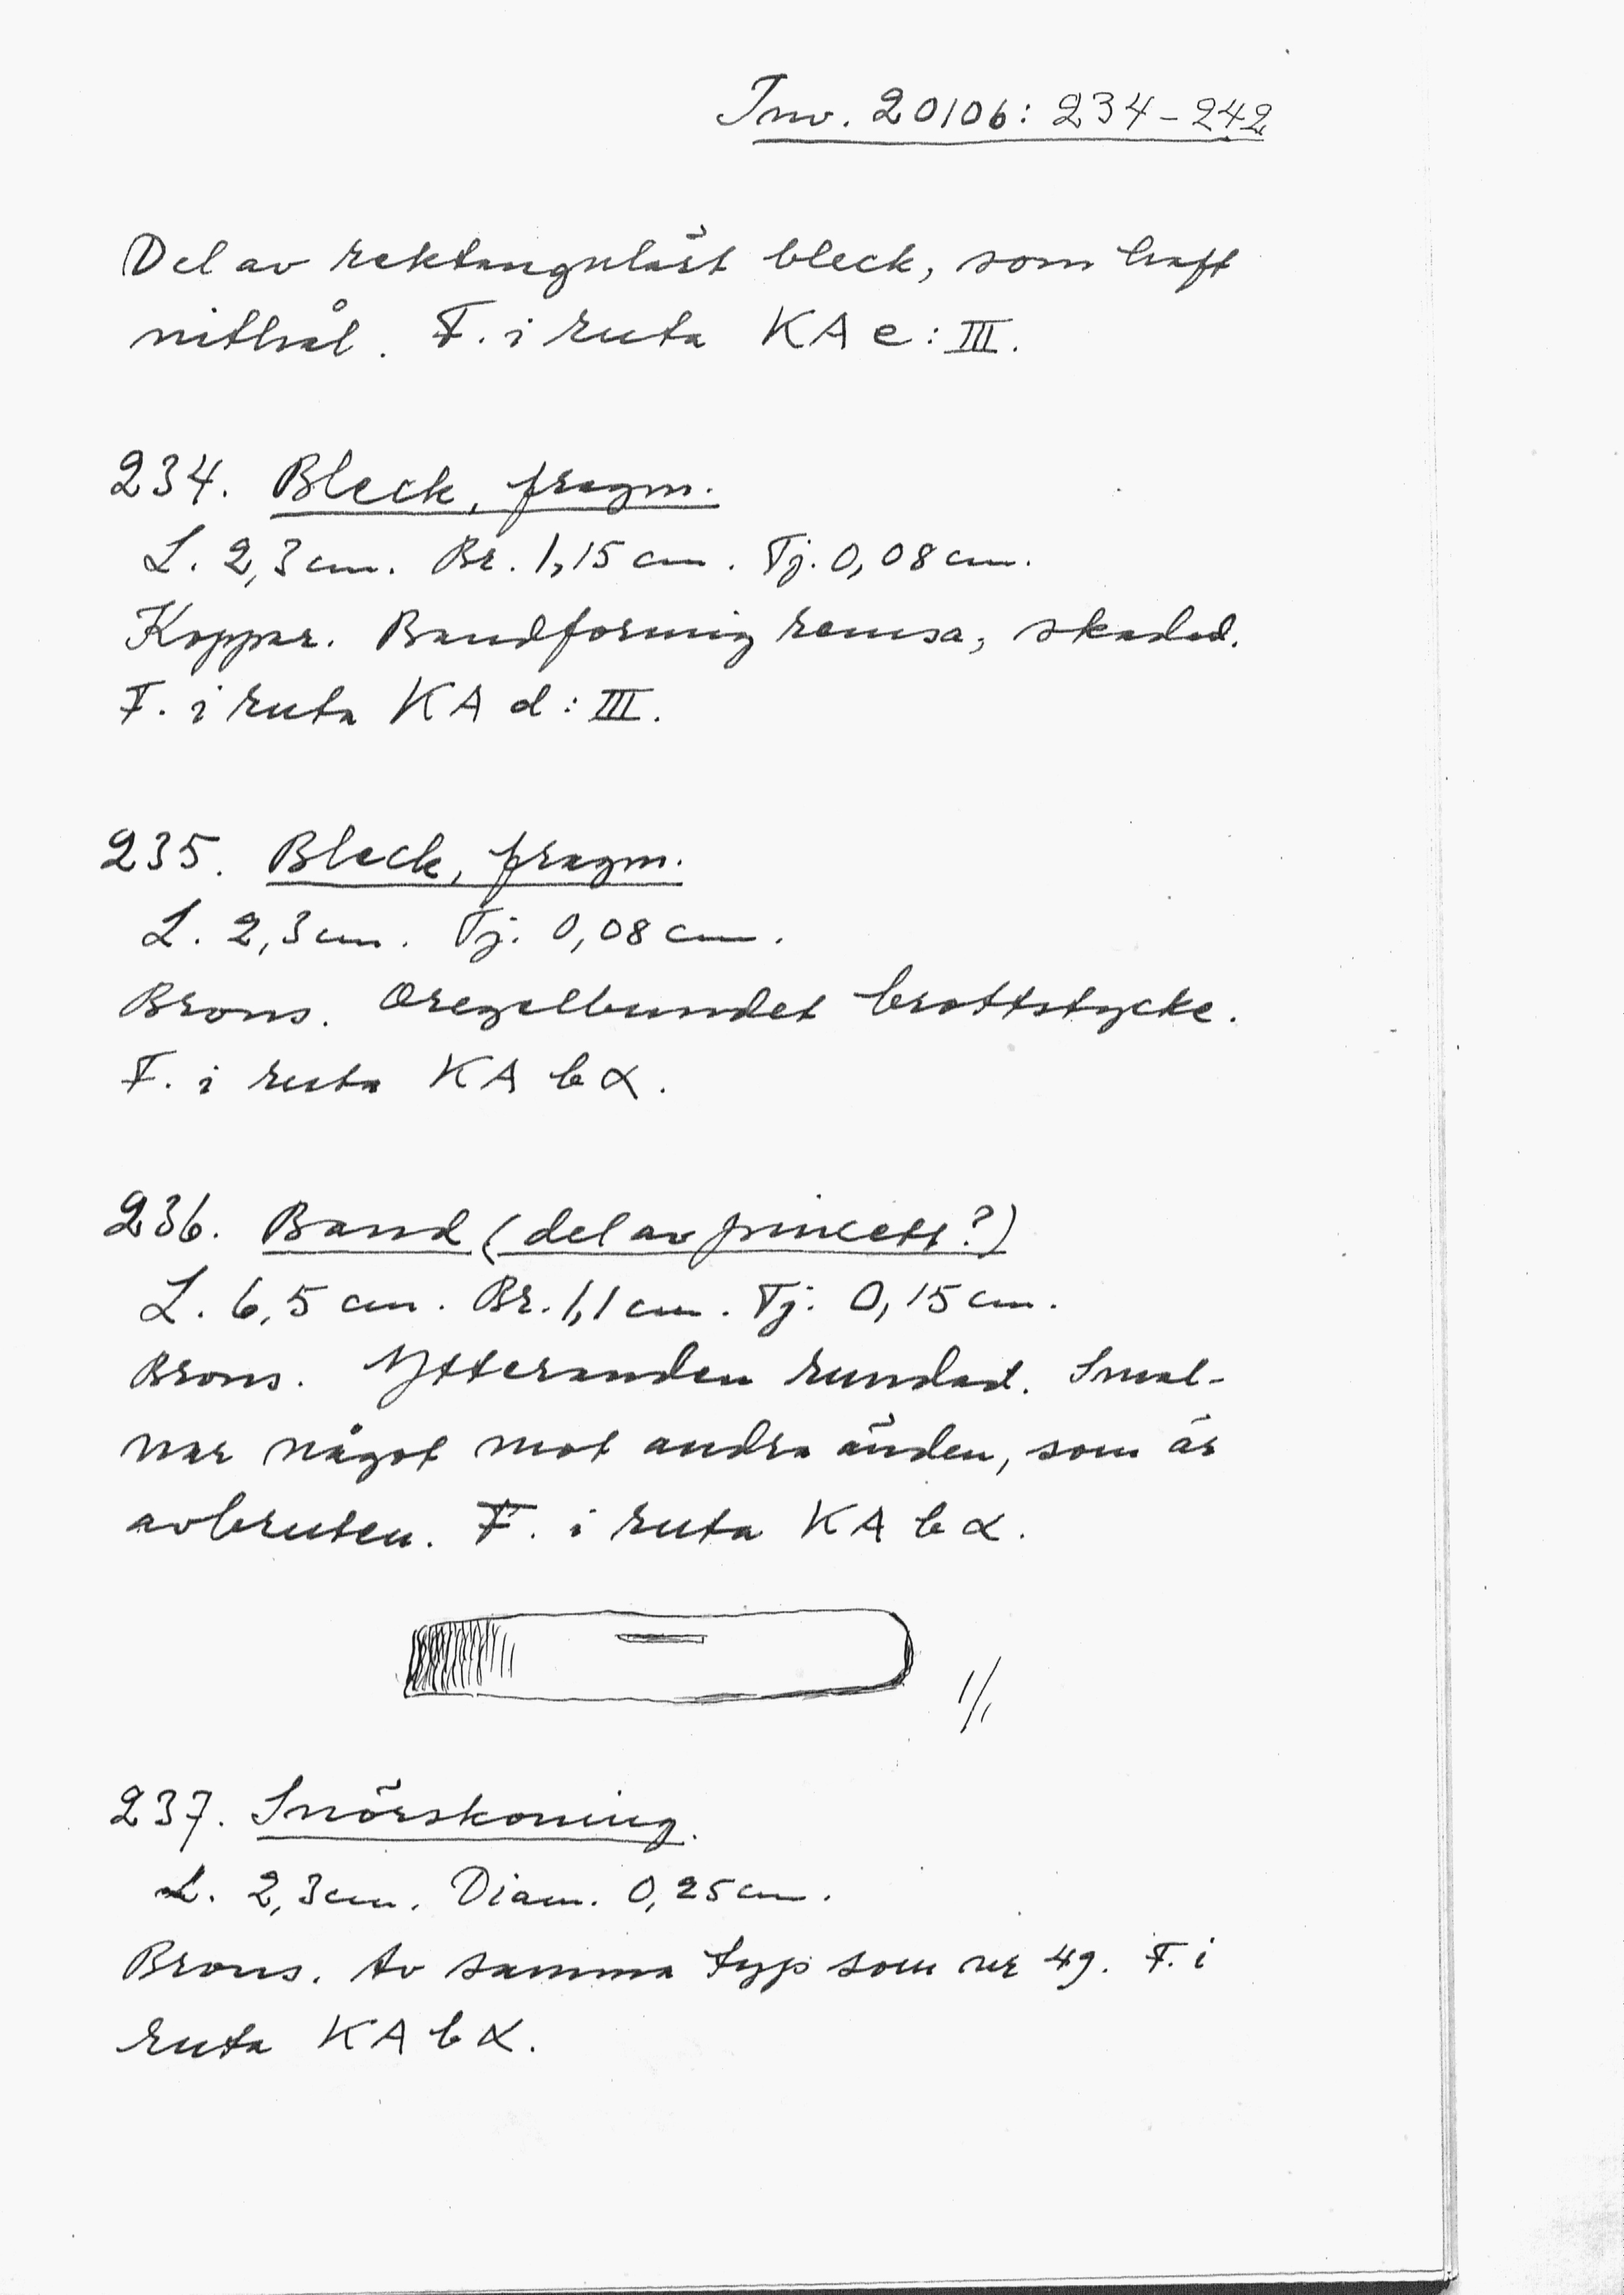 Inv. 20106: 234-242
Del av rektangulärt bleck, som haft
nithål. F. i ruta KA e: III.
234. Bleck, fragm.
L. 2,3 cm. Br. 1,15 cm. Tj. 0,08 cm.
Koppar. Bandformig remsa, skadad.
F. i ruta KA d: III.
235. Bleck, fragm.
L. 2,3 cm. Tj. 0,08 cm.
Brons. Oregelbundet brottstycke.
F. i ruta KA b α.
236. Band (del av pincett?)
L. 6,5 cm. Br. 1,1 cm. Tj. 0,15 cm.
Brons. Ytteranden rundad. Smal-
nar något mot andra änden, som är
avbruten. F. i ruta KA b α.
1/1
237. Snörskoning.
L. 2,3 cm. Diam. 0,25 cm.
Brons. Av samma typ som nr 49. F. i
ruta KA b α.